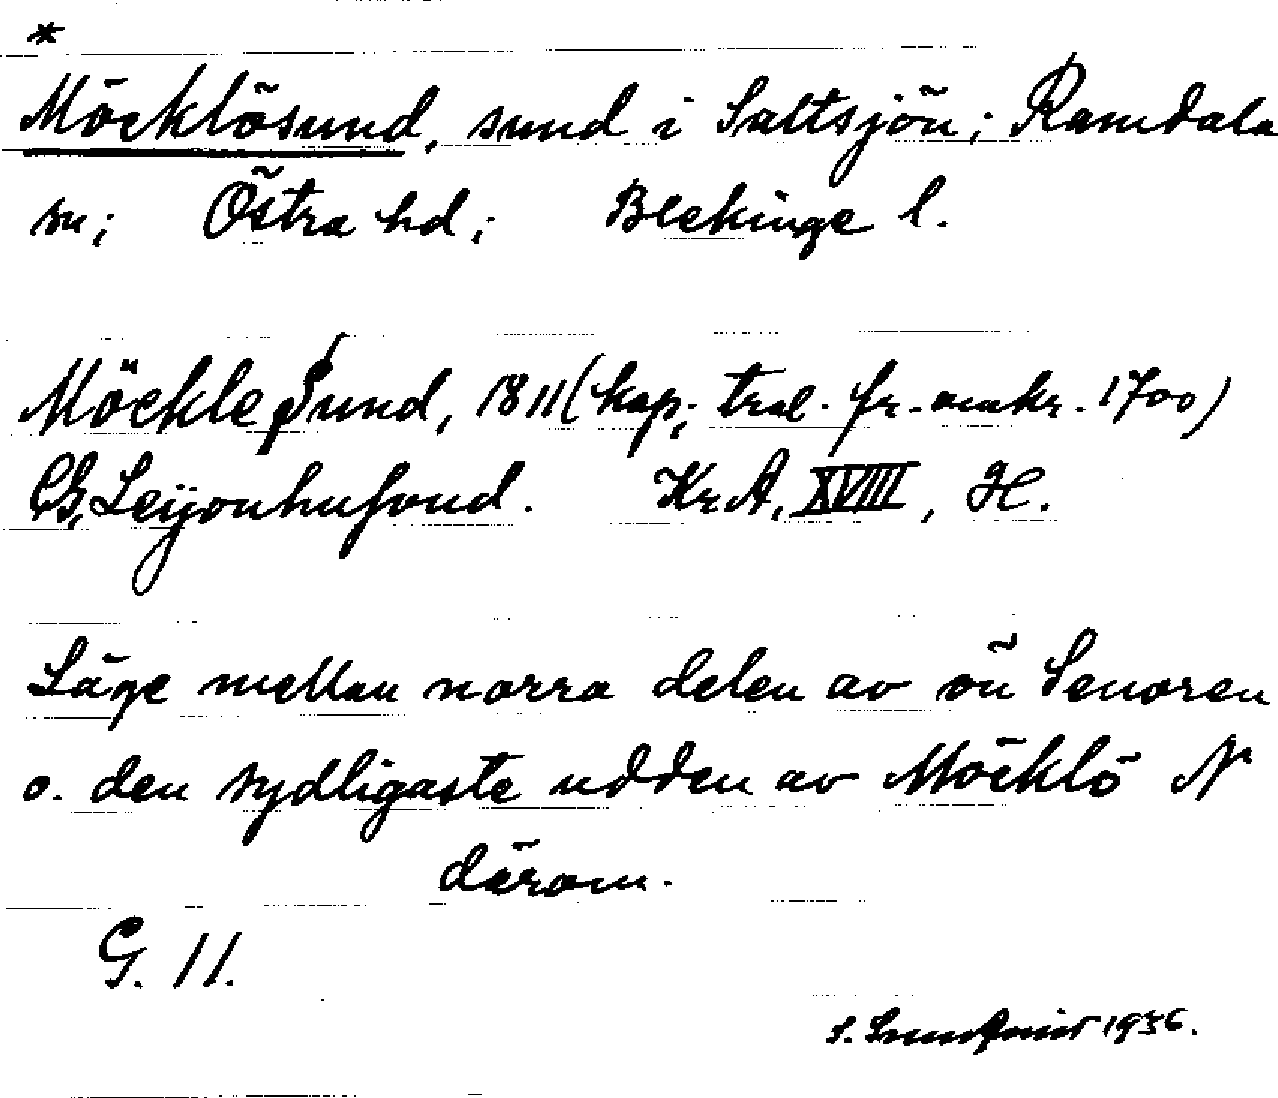 *
Möcklösund, sund i Saltsjön; Ramdala
sn; Östra hd; Blekinge l.
Möckle Sund, 1811 (kop; tral. fr. omkr. 1700)
CG, Leijonhufvud. Kr. A. XVIII, H.
Läge mellan norra delen av ön Senoren
o. den sydligaste udden av Möcklö N
därom.
G. 11.
S. 1936.